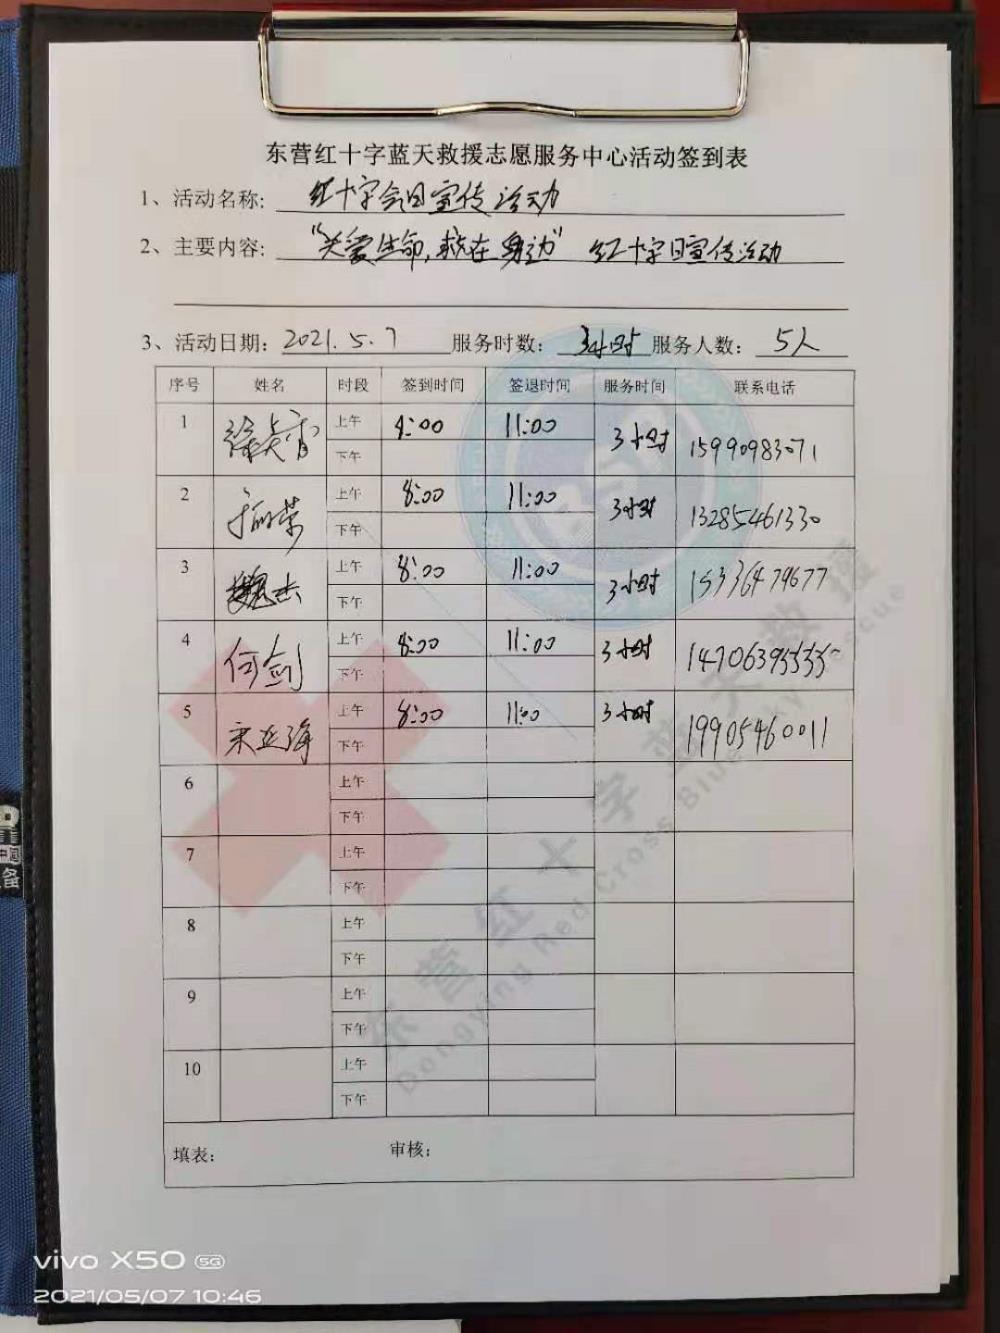 东营红十字蓝天救援志愿服务中心活动签到表
1、活动名称: 红十字会日宣传活动
2、主要内容: “关爱生命,就在身边” 红十字日宣传活动
3、活动日期: 2021.5.7 服务时数: 3小时 服务人数: 5人
序号 姓名 时段 签到时间 签退时间 服务时间 联系电话
1 上午 8:00 11:00 3小时 15990983071
下午
2 上午 8:00 11:00 3小时 13285461330
下午
3 魏杰 上午 8:00 11:00 3小时 15336479677
下午
4 何剑 上午 8:00 11:00 3小时 14706395555
下午
5 宋延海 上午 8:00 11:00 3小时 19905460011
下午
6 上午
下午
7 上午
下午
8 上午
下午
9 上午
下午
10 上午
下午
填表: 审核:
东营红十字蓝天救援
Dongying Red Cross Blue Sky Rescue
中国
备
vivo X50 5G
2021/05/07 10:46